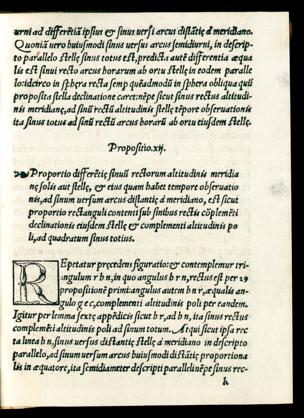 urni ad differētiā ipsius & sinus versi arcus distātię à meridiano.
Quoniā vero huiusmodi sinus versus arcus semidiurni, in descrip-
to parallelo stellę sinus totus est, predicta autē differentia æqua
lis est sinui recto arcus horarum ab ortu stellę in eodem paralle
lo: idcirco in sphęra recta semp quēadmodū in sphera obliqua quū
proposita stella declinatione caret: nēpe sicut sinus rectus altitudi-
nis meridianę, ad sinū rectū altitudinis stellę tēpore observationis
ita sinus totus ad sinū rectū arcus horarū ab ortu eiusdem stellę.
Propositio.xij.
Proportio differētię sinuū rectorum altitudinis meridia
nę solis aut stellę, & eius quam habet tempore observatio
nis, ad sinum versum arcus distantię à meridiano, est sicut
proportio rectanguli contenti sub sinibus rectis cōplemēti
declinationis eiusdem stellę & complementi altitudinis po
li, ad quadratum sinus totius.
REpetatur pręcedens figuratio: & contemplemur tri-
angulum r h n, in quo angulus h r n, rectus est per 29
propositionē primi: angulus autem h n r, æqualis an-
gulo g e c, complementi altitudinis poli per eandem.
Igitur per lemma sextę appēdicis sicut h r, ad h n, ita sinus rectus
complemēti altitudinis poli ad sinum totum. At qui sicut ipsa rec
ta linea h n, sinus versus distantię stellę à meridiano in descripto
parallelo, ad sinum versum arcus huiusmodi distātię proportiona
lis in æquatore, ita semidiameter descripti paralleli nēpe sinus rec-
h